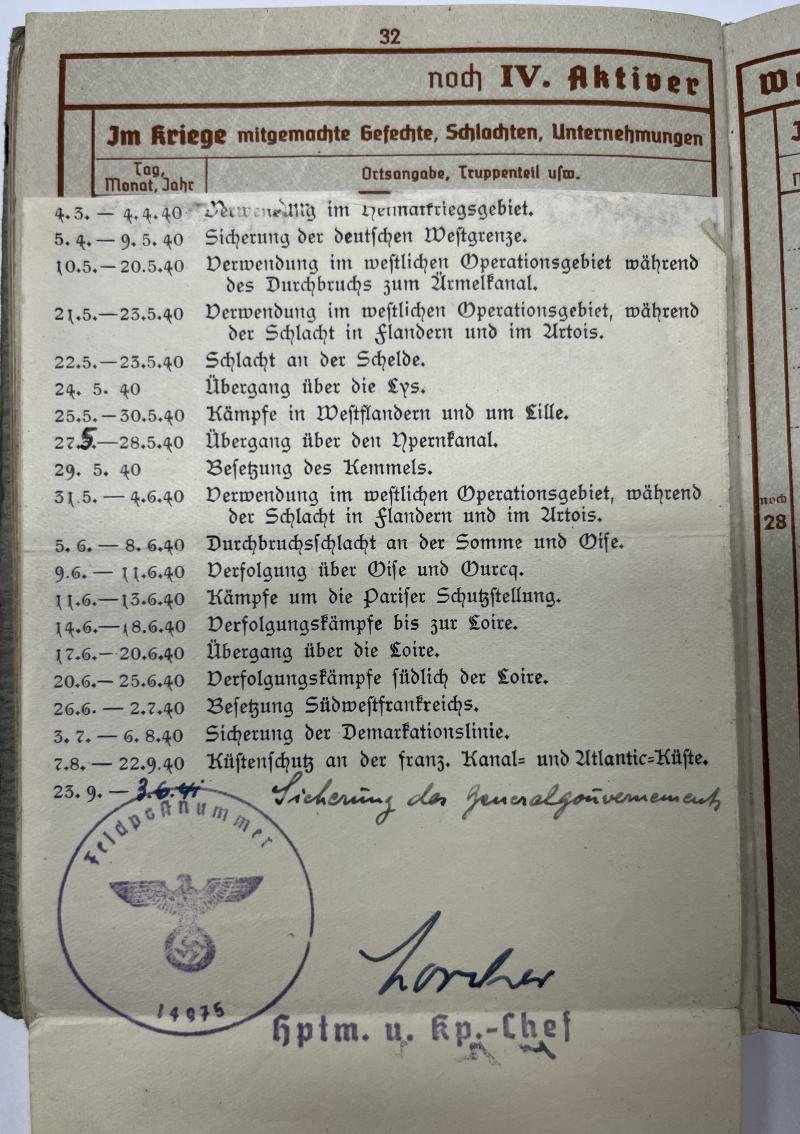 32
noch IV. Aktiver
Im Kriege mitgemachte Gefechte, Schlachten, Unternehmungen
Tag, Monat, Jahr
Ortsangabe, Truppenteil usw.
4.3. — 4.4.40 Verwendung im Heimatkriegsgebiet.
5.4. — 9.5.40 Sicherung der deutschen Westgrenze.
10.5.—20.5.40 Verwendung im westlichen Operationsgebiet während
des Durchbruchs zum Ärmelkanal.
21.5.—23.5.40 Verwendung im westlichen Operationsgebiet, während
der Schlacht in Flandern und im Artois.
22.5.—23.5.40 Schlacht an der Schelde.
24. 5. 40 Übergang über die Lys.
25.5.—30.5.40 Kämpfe in Westflandern und um Lille.
27.5.—28.5.40 Übergang über den Ypernkanal.
29. 5. 40 Besetzung des Kemmels.
31.5. — 4.6.40 Verwendung im westlichen Operationsgebiet, während
der Schlacht in Flandern und im Artois.
5. 6. — 8. 6.40 Durchbruchsschlacht an der Somme und Oise.
9.6. — 11.6.40 Verfolgung über Oise und Ourcq.
11.6.—13.6.40 Kämpfe um die Pariser Schutzstellung.
14.6.—18.6.40 Verfolgungskämpfe bis zur Loire.
17.6.—20.6.40 Übergang über die Loire.
20.6.— 25.6.40 Verfolgungskämpfe südlich der Loire.
26.6. — 2.7.40 Besetzung Südwestfrankreichs.
3. 7. — 6. 8.40 Sicherung der Demarkationslinie.
7.8. — 22.9.40 Küstenschutz an der franz. Kanal= und Atlantic=Küste.
23. 9. — 3.6.41 Sicherung des Generalgouvernements
Feldpostnummer
14975
Lorcher
Hptm. u. Kp.-Chef
noch
28